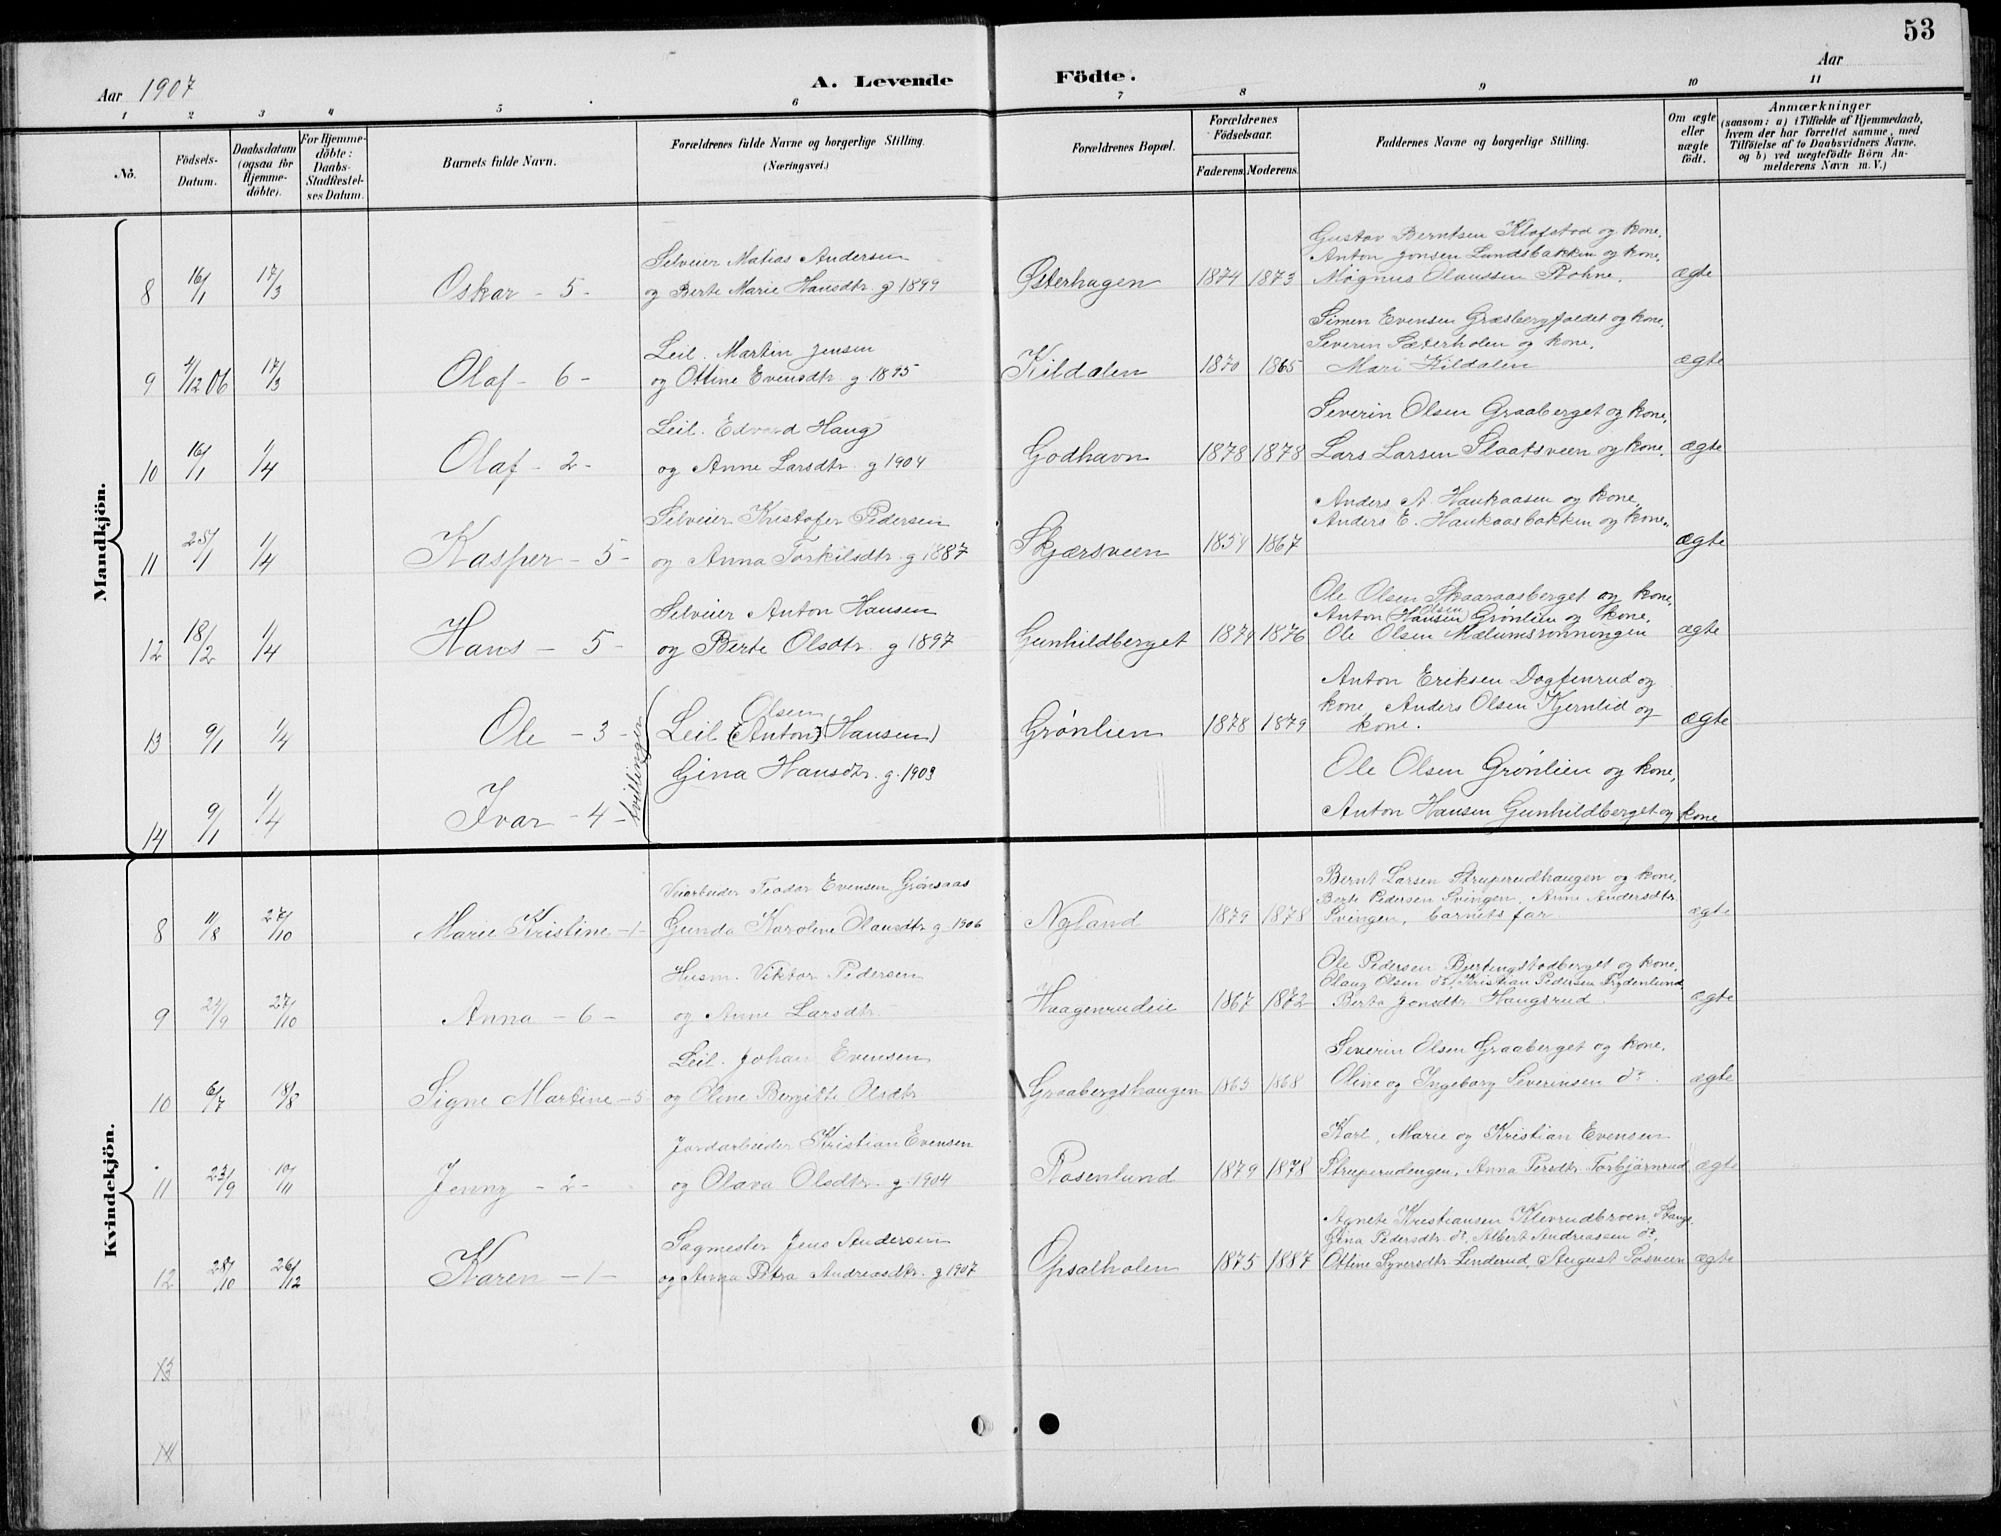 53
Aar 1907
A. Levende Födte.
Aar
1 2 3 4 5 6 7 8 9 10 11
No.
Födsels-Datum.
Daabsdatum (ogsaa for Hjemme-döbte).
For Hjemme-döbte: Daabs-Stadfæstel-ses Datum.
Barnets fulde Navn.
Forældrenes fulde Navne og borgerlige Stilling.
(Næringsvei.)
Forældrenes Bopæl.
Forældrenes Födselsaar.
Faderens. Moderens.
Faddernes Navne og borgerlige Stilling.
Om ægte eller uægte födt.
Anmærkninger
(saasom: a) i Tilfælde af Hjemmedaab,
hvem der har forrettet samme, med
Tilföielse af to Daabsvidners Navne,
og b) ved uægtefödte Börn An-
melderens Navn m. V.)
Mandkjön.
Gustav Berntsen Klofstad og kone,
Selveier Matias Andersen
Anton Jonsen Lundsbakken og kone,
8 16/1 17/3 Oskar - 5 - og Berte Marie Hansdtr. g 1899 Østerhagen 1874 1873 Magnus Olaussen Rohne. ægte
Simen Evensen Græsbergfaldet og kone,
Leil. Martin Jensen
Severin Sæterholen og kone,
9 4/12 06 17/3 Olaf - 6 - og Ottine Evensdtr. g 1895 Kildalen 1870 1865 Mari Kildalen ægte
Leil. Edvard Haug
Severin Olsen Graaberget og kone,
10 16/1 1/4 Olaf - 2 - og Anne Larsdtr. g 1904 Godhavn 1878 1878 Lars Larsen Slaatsveen og kone. ægte
Selveier Kristofer Pedersen
Anders A. Haukaasen og kone,
Anders E. Haukaasbakken og kone.
11 25/1 1/4 Kasper - 5 - og Anna Torkilsdtr. g 1887 Skjærsveen 1854 1867 ægte
Selveier Anton Hansen
Ole Olsen Skaaraasberget og kone,
Olsen
Anton (Hansen) Grønlien og kone,
12 18/2 1/4 Hans - 5 - og Berte Olsdtr. g 1897 Gunhildberget 1874 1876 Ole Olsen Mælumsrønningen ægte
Anton Eriksen Dagfinrud og
Olsen
kone, Anders Olsen Kjernlid og
13 9/1 1/4 Ole - 3 - Leil (Anton) (Hansen) Grønlien 1878 1879 kone. ægte
tvillinger
Gina Hansdtr. g. 1903
Ole Olsen Grønlien og kone,
14 9/1 1/4 Ivar - 4 - Anton Hansen Gunhildberget og kone
Kvindekjön.
Veiarbeider Teodor Evensen Grønsaas
Bernt Larsen Struperudhaugen og kone,
Berte Pedersen Svingen, Anne Andersdtr.
8 11/8 27/10 Marie Kristine - 1 - Gunda Karoline Olausdtr. g 1906 Nyland 1879 1878 Svingen, barnets far ægte
Husm. Viktor Pedersen
Ole Pedersen Bjertingstadberget og kone,
Olaug Olsen do, Kristian Pedersen Frydenlund
9 24/9 27/10 Anna - 6 - og Anne Larsdtr. Haagenrudeie 1867 1872 Berta Jonsdtr. Haugsrud. ægte
Leil. Johan Evensen
Severin Olsen Graaberget og kone,
10 6/7 18/8 Signe Martine - 5 og Oline Bergitte Olsdtr. Graabergshaugen 1863 1868 Oline og Ingeborg Severinsen do. ægte
Jordarbeider Kristian Evensen
Karl, Marie og Kristian Evensen
11 23/9 10/11 Jenny - 2 - og Olava Olsdtr. g. 1904 Rosenlund 1879 1878 Struperudengen, Anna Persdtr. Torbjørnrud ægte
Sagmester Jens Andersen
Agnete Kristiansen Klevrudbroen, Stange
Gina Pedersdtr. do, Albert Andreassen do,
12 28/10 26/12 Karen - 1 - og Anna Petra Andreasdtr. g 1907 Opsalholen 1875 1887 Ottine Syversdtr. Linderud, August Posveen ægte
13
14